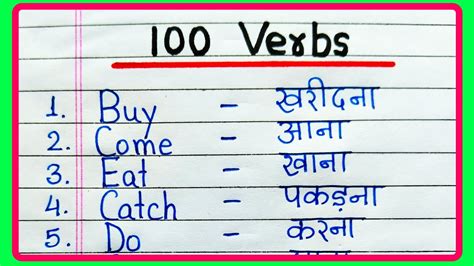 100 Verbs
1. Buy - खरीदना
2. Come - आना
3. Eat - खाना
4. Catch - पकड़ना
5. Do - करना